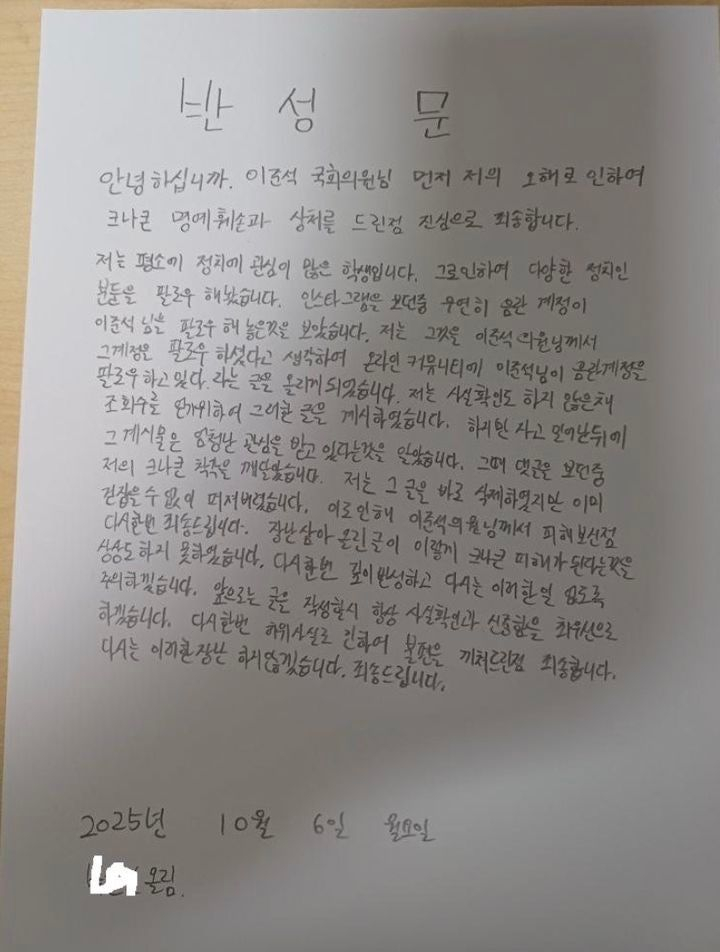 반 성 문
안녕하십니까. 이준석 국회의원님 먼저 저의 오해로 인하여
크나큰 명예훼손과 상처를 드린점 진심으로 죄송합니다.
저는 평소에 정치에 관심이 많은 학생입니다. 그로인하여 다양한 정치인
분들을 팔로우 해놨습니다. 인스타그램을 보던중 우연히 음란 계정이
이준석 님을 팔로우 해 놓은것을 보았습니다. 저는 그것을 이준석 의원님께서
그계정을 팔로우 하셨다고 생각하여 온라인 커뮤니티에 이준석님이 음란계정을
팔로우하고있다. 라는 글을 올리게 되었습니다. 저는 사실확인도 하지 않은채
조회수를 위하여 그러한 글을 게시하였습니다. 하지만 자고 일어난뒤에
그 게시물은 엄청난 관심을 받고 있다는것을 알았습니다. 그때 댓글을 보던중
저의 크나큰 착각을 깨달았습니다. 저는 그 글을 바로 삭제하였지만 이미
걷잡을 수 없이 퍼져버렸습니다. 이로인해 이준석의원님께서 피해보신점
다시한번 죄송드립니다. 장난삼아 올린글이 이렇게 크나큰 피해가 된다는것을
상상도 하지 못하였습니다. 다시한번 깊이 반성하고 다시는 이러한일 없도록
주의하겠습니다. 앞으로는 글을 작성할시 항상 사실확인과 신중함을 최우선으로
하겠습니다. 다시한번 허위사실로 인하여 불편을 끼쳐드린점 죄송합니다.
다시는 이러한장난 하지않겠습니다. 죄송드립니다.
2025년 10월 6일 월요일
올림.